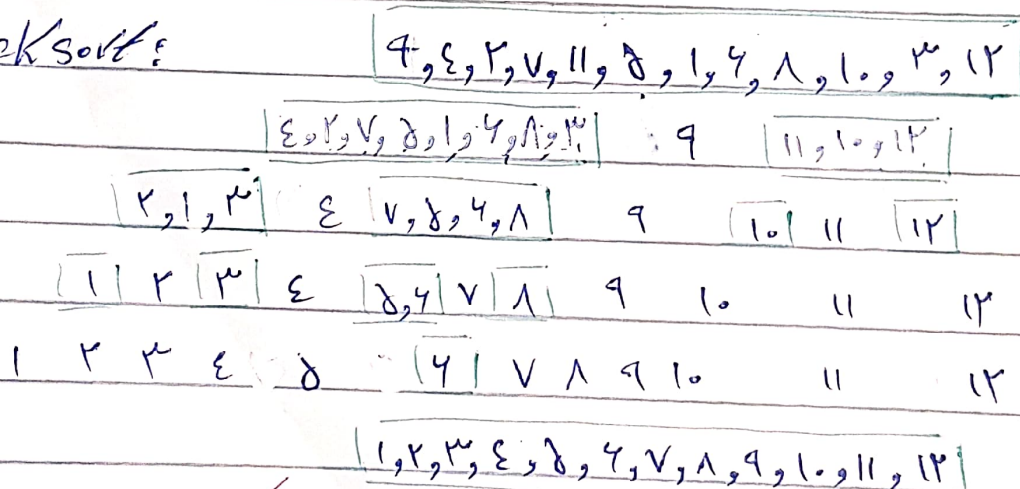 ek sort:
۹, ٤, ۲, ۷, ۱۱, ۵, ۱, ۶, ۸, ۱۰, ۳, ۱۲
٤, ۲, ۷, ۵, ۱, ۶, ۸, ۳ ۹ ۱۱, ۱۰, ۱۲
۲, ۱, ۳ ٤ ۷, ۵, ۶, ۸ ۹ ۱۰ ۱۱ ۱۲
۱ ۲ ۳ ٤ ۵, ۶ ۷ ۸ ۹ ۱۰ ۱۱ ۱۲
۱ ۲ ۳ ٤ ۵ ۶ ۷ ۸ ۹ ۱۰ ۱۱ ۱۲
۱, ۲, ۳, ٤, ۵, ۶, ۷, ۸, ۹, ۱۰, ۱۱, ۱۲